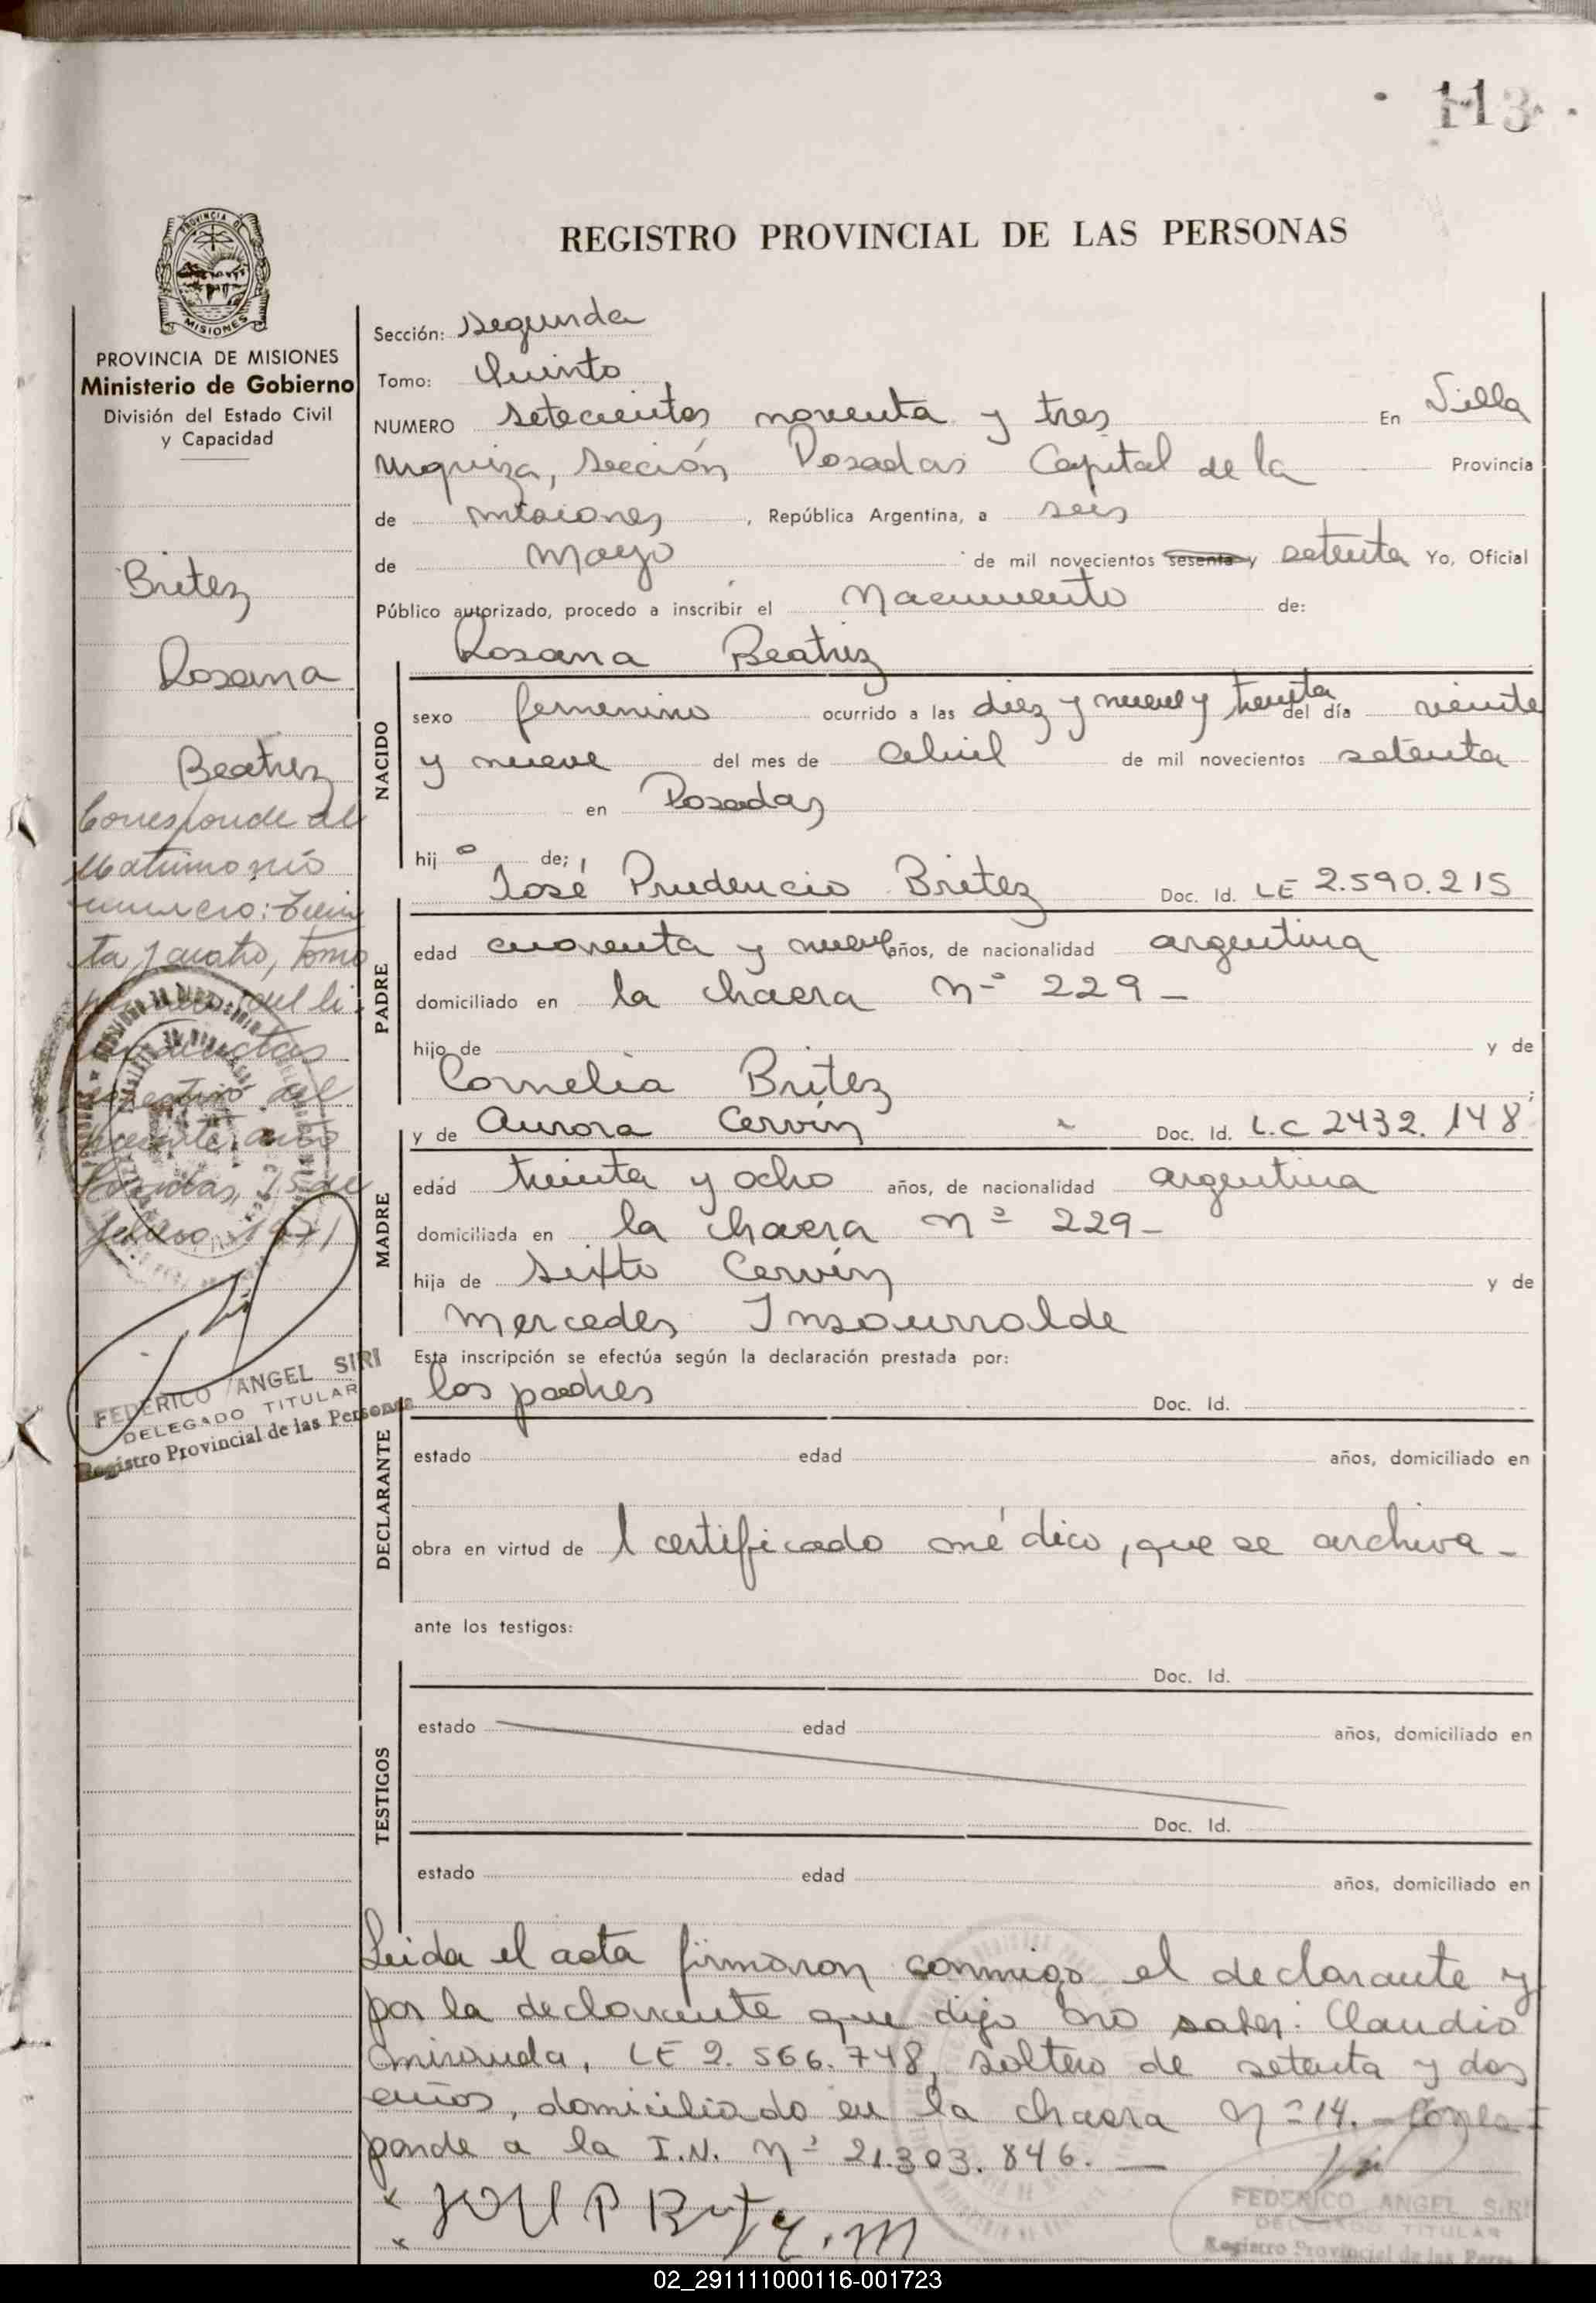 113
REGISTRO PROVINCIAL DE LAS PERSONAS
PROVINCIA DE MISIONES
Ministerio de Gobierno
División del Estado Civil
y Capacidad
Britez
Rosana
Beatriz
Corresponde al
Matrimonio
numero: Trein
ta y cuatro, tomo
primero del li
actas
respectivo del
presente año
Posadas, 15 de
febrero 1971
FEDERICO ANGEL SIRI
DELEGADO TITULAR
Registro Provincial de las Personas
Sección: segunda
Tomo: Quinto
NUMERO setecientos noventa y tres En Villa
Urquiza, sección Posadas Capital de la Provincia
de misiones, República Argentina, a seis
de Mayo de mil novecientos sesenta y setenta Yo, Oficial
Público autorizado, procedo a inscribir el Nacimiento de:
Rosana Beatriz
NACIDO
sexo femenino ocurrido a las diez y nueve y treinta del día veinte
y nueve del mes de Abril de mil novecientos setenta
en Posadas
hij a de;
José Prudencio Britez Doc. Id. LE 2.590.215
PADRE
edad cuarenta y nueve años, de nacionalidad argentina
domiciliado en la chacra Nº 229-
hijo de y de
Cornelia Britez;
y de Aurora Cervín Doc. Id. L.C 2432.148
MADRE
edad treinta y ocho años, de nacionalidad argentina
domiciliada en la chacra nº 229-
hija de Sixto Cervín y de
Mercedes Insaurralde
Esta inscripción se efectúa según la declaración prestada por:
los padres Doc. Id.
DECLARANTE
estado edad años, domiciliado en
obra en virtud de l certificado médico, que se archiva-
ante los testigos:
TESTIGOS
Doc. Id.
estado edad años, domiciliado en
Doc. Id.
estado edad años, domiciliado en
Leida el acta firmaron conmigo el declarante y
por la declarante que dijo no saber: Claudio
Miranda, LE 2.566.748, soltero de setenta y dos
años, domiciliado en la chacra Nº 14.- Corres-
ponde a la I.N. Nº 21.303.846.-
x José P Britez
x C.M
FEDERICO ANGEL SIRI
DELEGADO TITULAR
Registro Provincial de las Pers
02_291111000116-001723